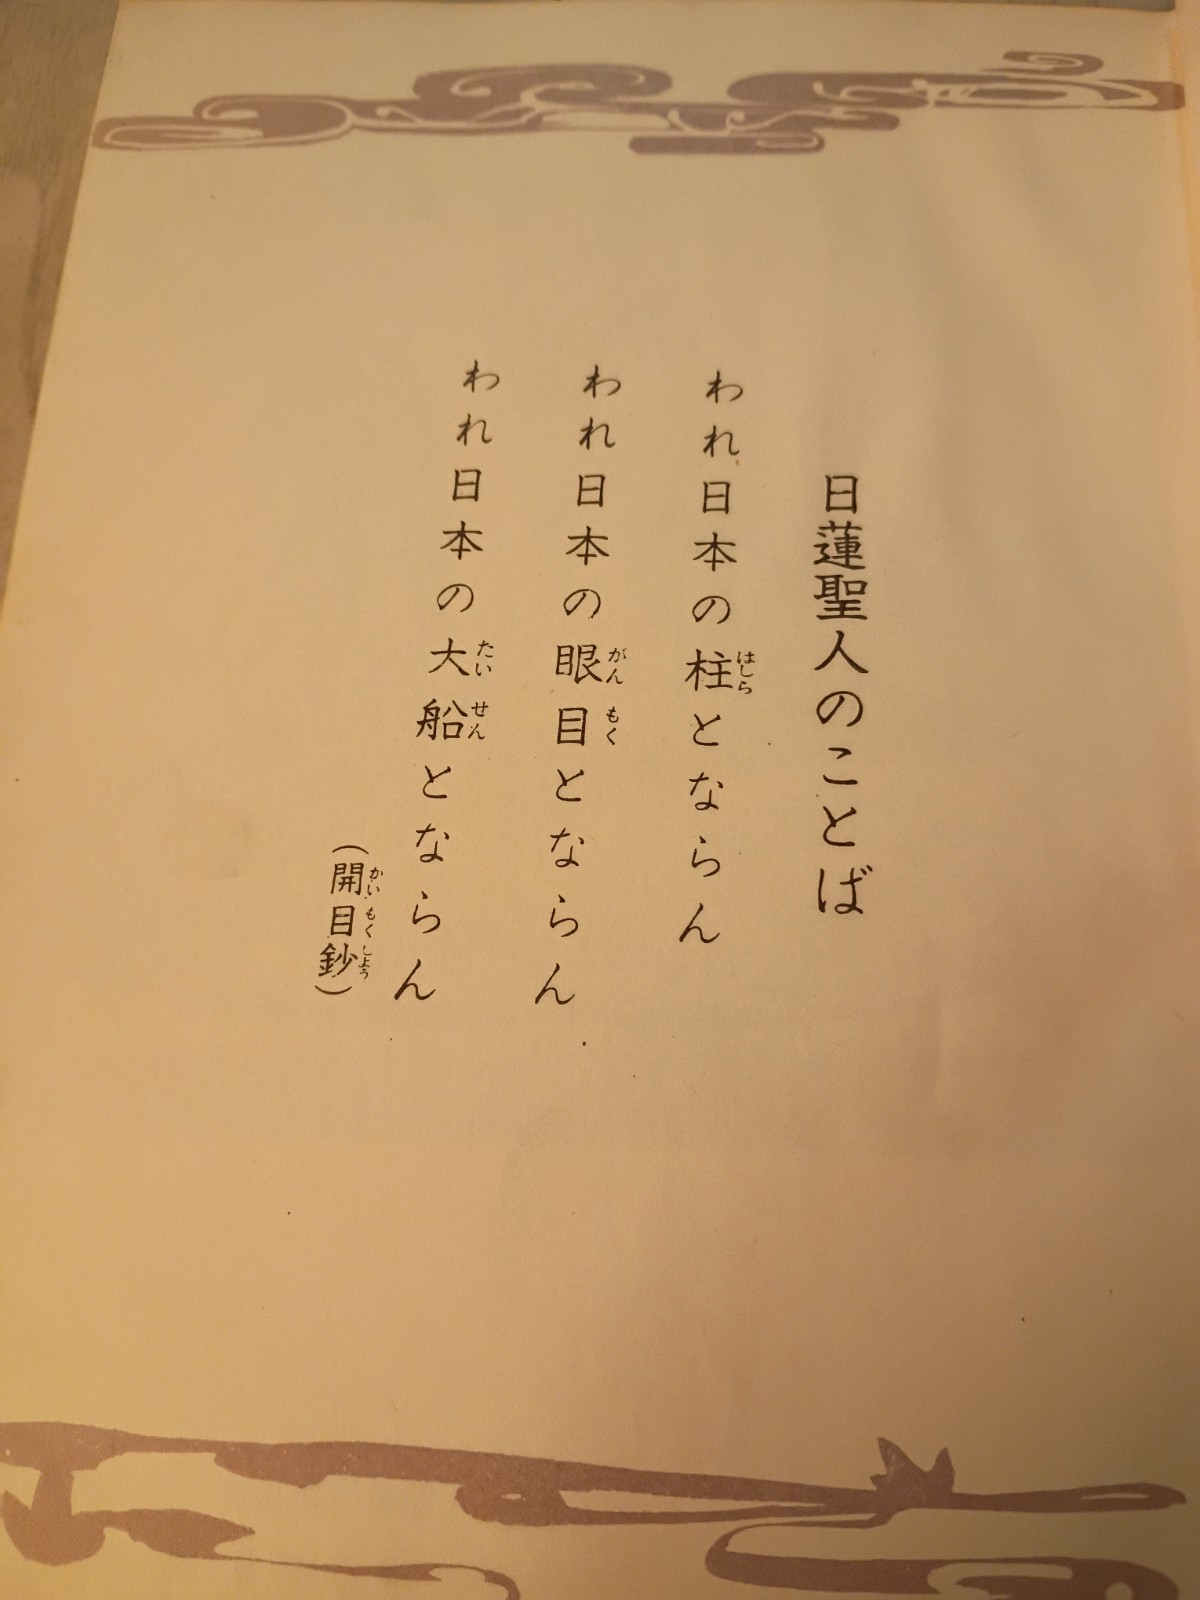 日蓮聖人のことば
われ日本の柱とならん
はしら
われ日本の眼目とならん
がんもく
われ日本の大船とならん
たいせん
（開目鈔）
かいもくしょう